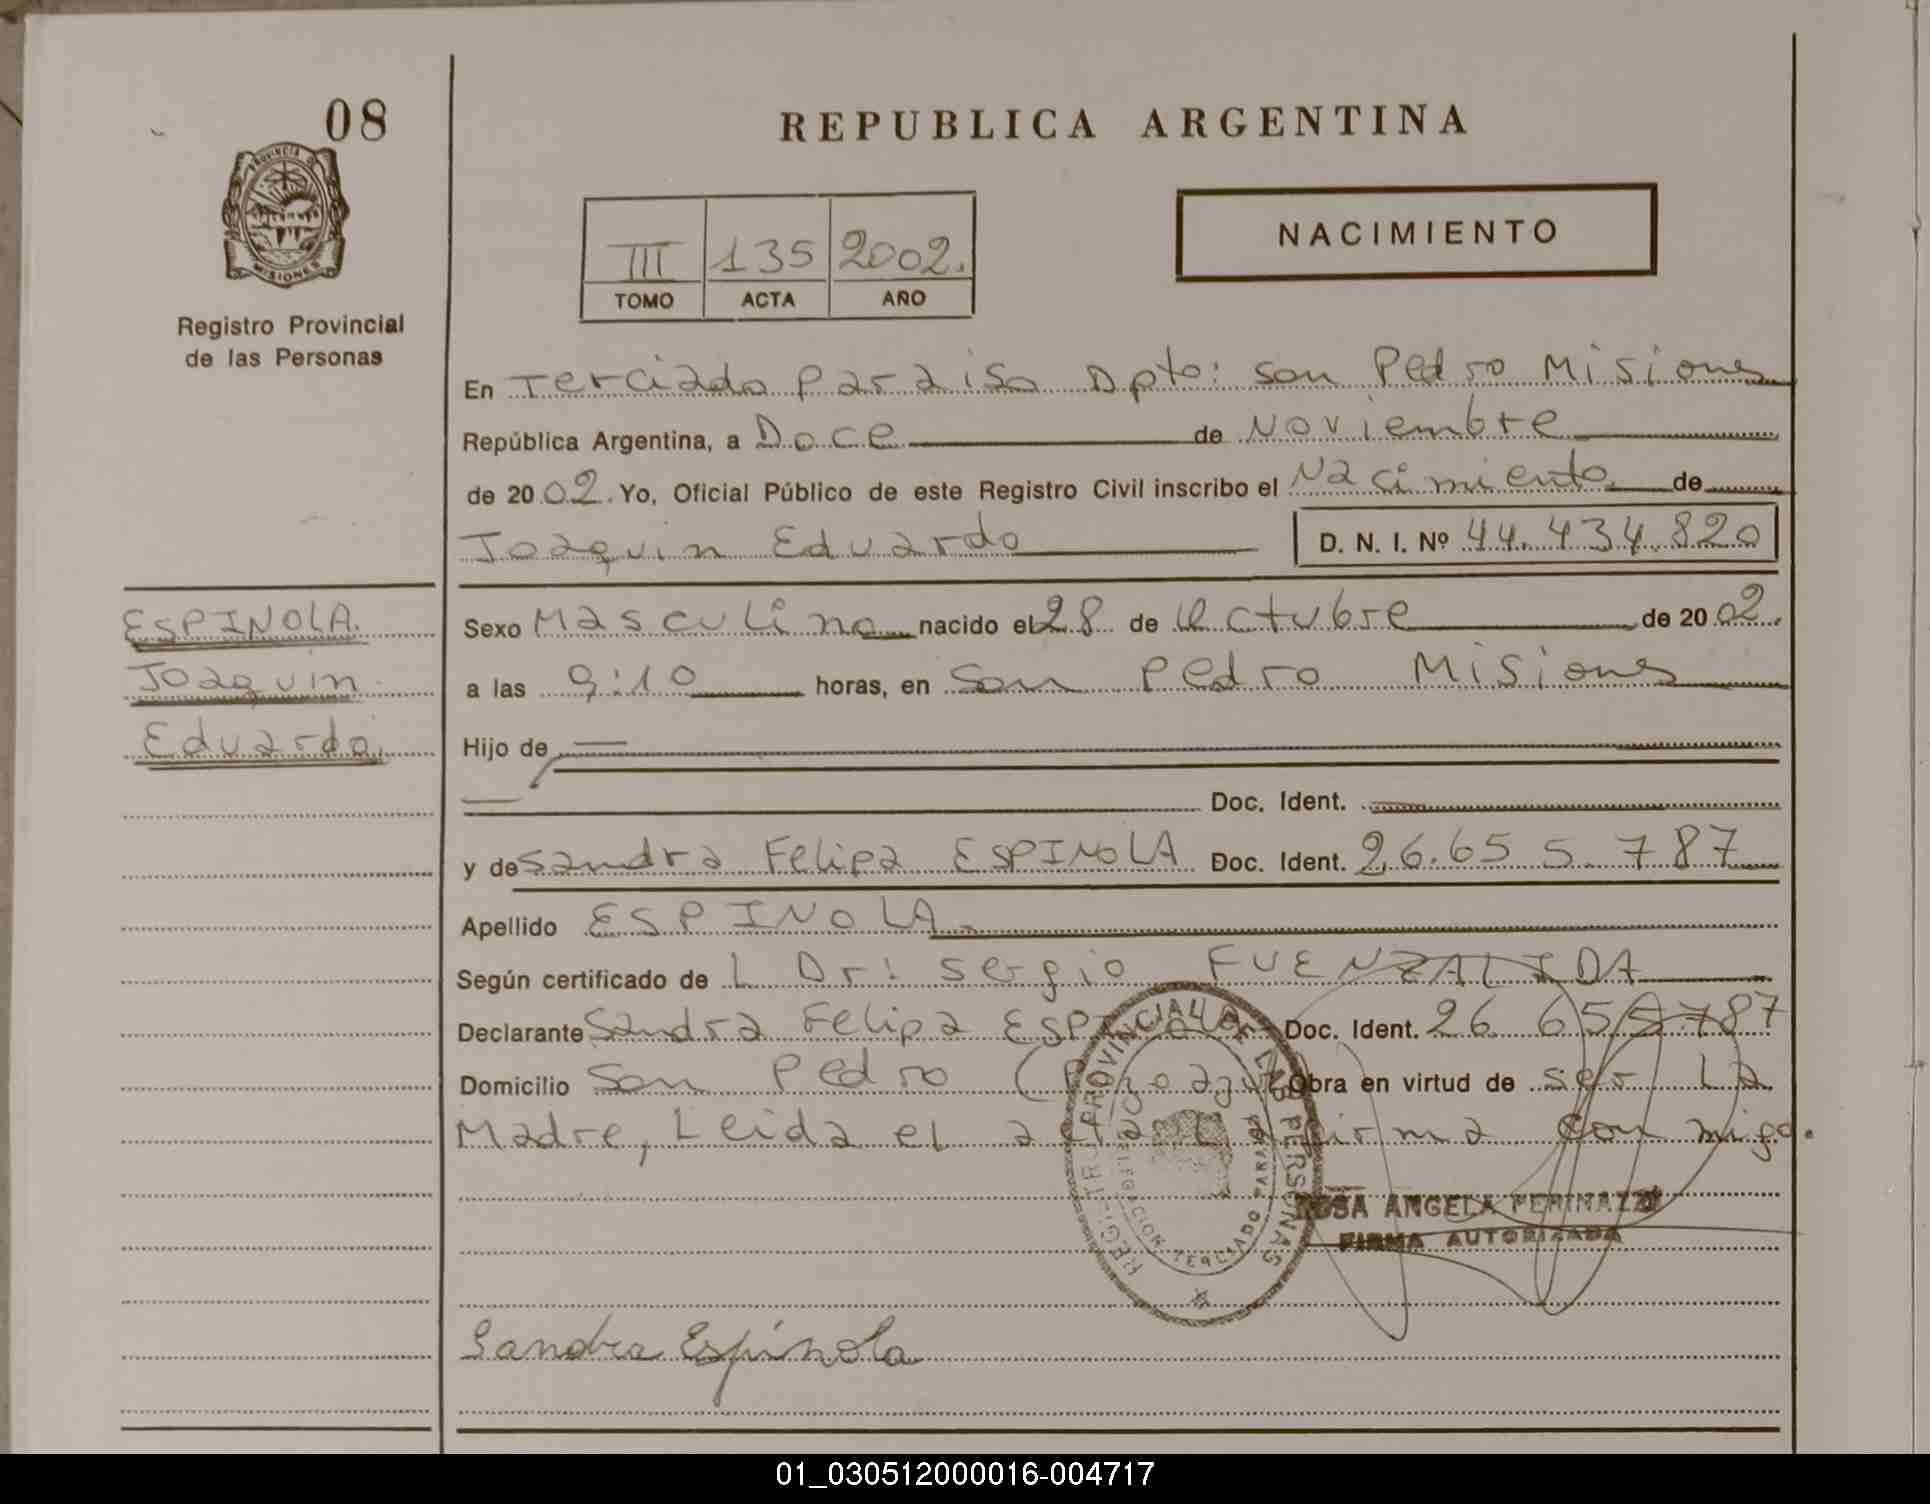 08
PROVINCIA DE
MISIONES
Registro Provincial
de las Personas
REPUBLICA ARGENTINA
III 135 2002.
TOMO ACTA AÑO
NACIMIENTO
En Terciado Paraiso Dpto: San Pedro Misiones
República Argentina, a Doce de Noviembre
de 2002. Yo, Oficial Público de este Registro Civil inscribo el Nacimiento de
Joaquin Eduardo D. N. I. Nº 44.434.820
ESPINOLA.
Joaquin
Eduardo.
Sexo Masculino nacido el 28 de Octubre de 2002.
a las 9:10 horas, en San Pedro Misiones
Hijo de
Doc. Ident.
y de Sandra Felipa ESPINOLA Doc. Ident. 26.655.787
Apellido ESPINOLA.
Según certificado de L Dr: Sergio FUENZALIDA
Declarante Sandra Felipa ESPINOLA Doc. Ident. 26 655 787
Domicilio San Pedro ( Obra en virtud de ser La
Madre, Leida el acta La firma con migo.
REGISTRO PROVINCIAL DE LAS PERSONAS
DELEGACION TERCIADO PARAISO
ROSA ANGELA PERINAZZO
FIRMA AUTORIZADA
Sandra Espínola
01_030512000016-004717